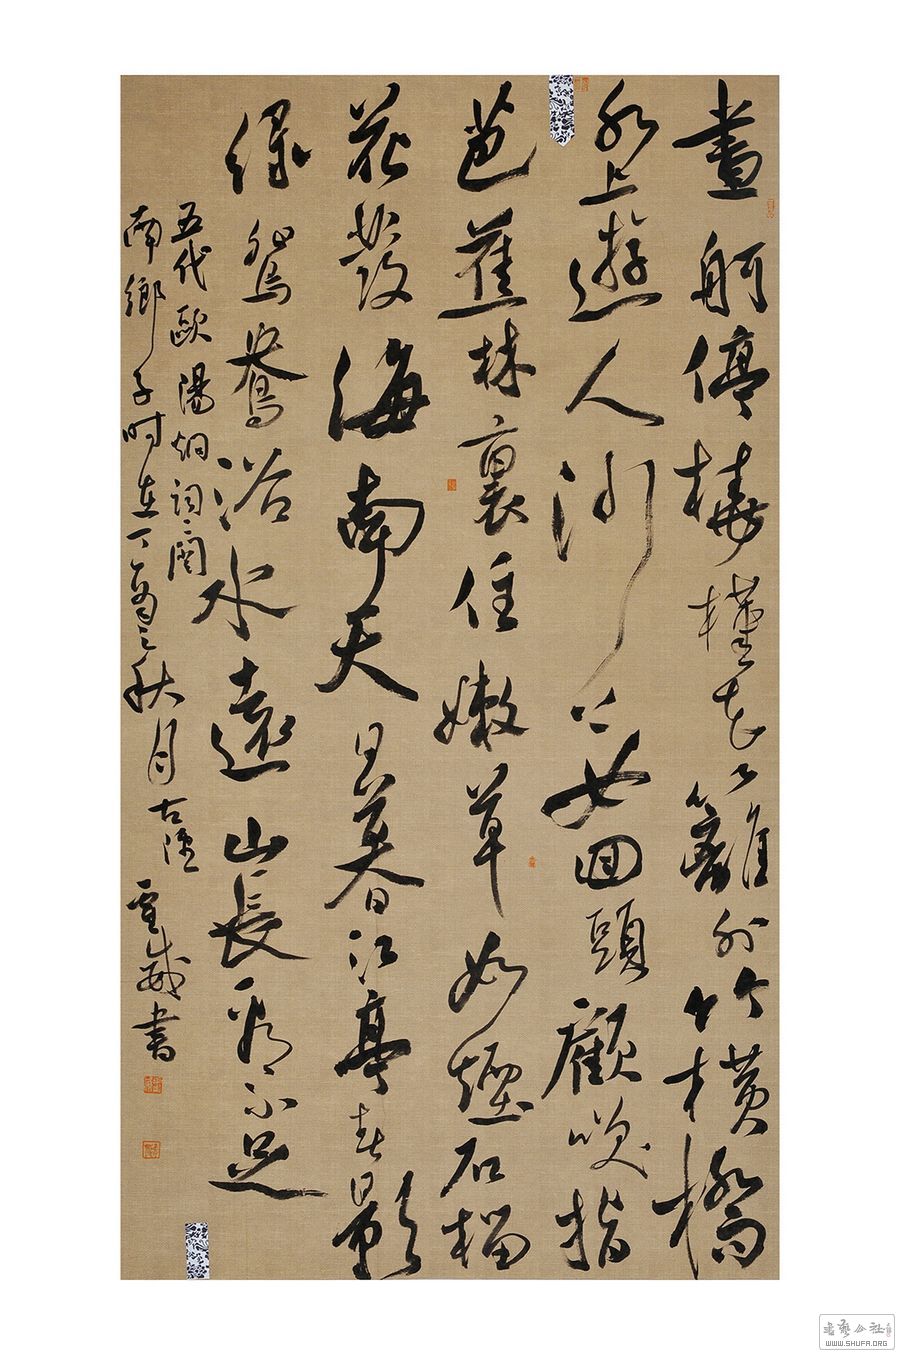 畫舸停橈槿花籬外竹橫橋
水上遊人沙上女回頭顧笑指
芭蕉林裏住嫩草如煙石榴
花發海南天日暮江亭春影
綠鴛鴦浴水遠山長看不足
五代歐陽炯詞二闋
南鄉子時在丁酉之秋月古書
書藝公社
WWW.SHUFA.ORG